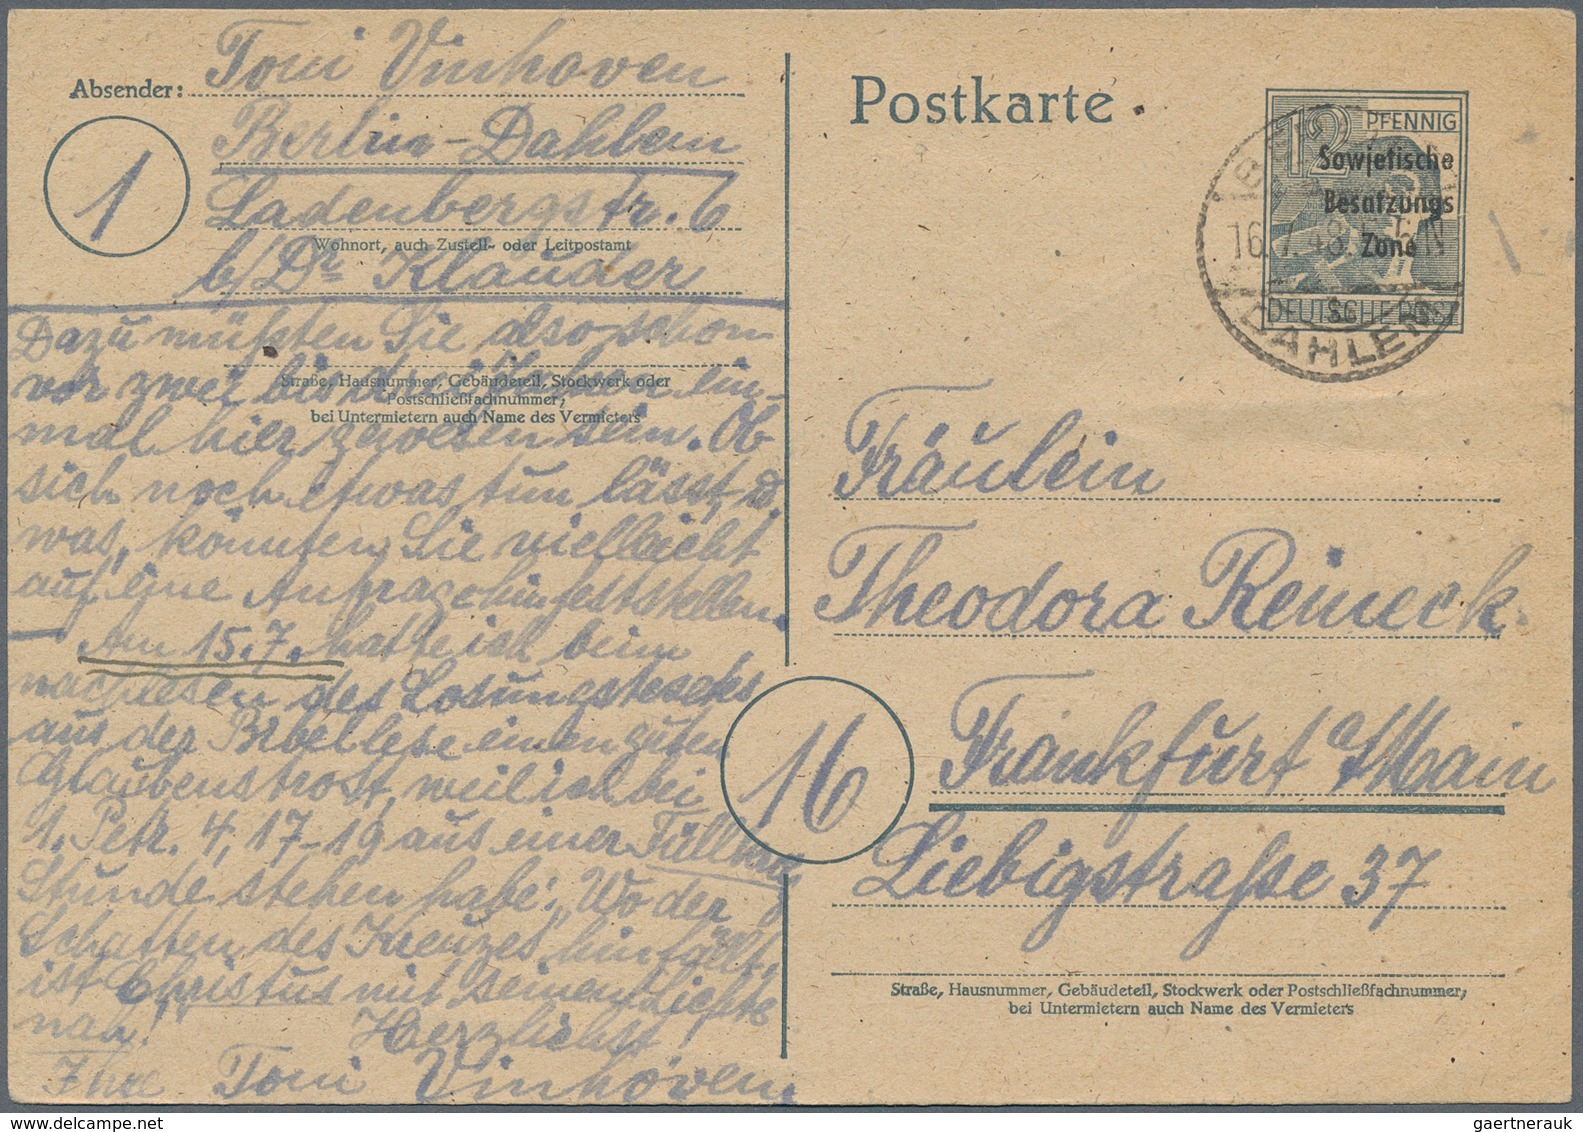 Absender: Toni Vinhoven
Berlin-Dahlem
1
Ladenbergstr. 6
Wohnort, auch Zustell- oder Leitpostamt
b/Dr Klauder
Dazu müßten Sie also schon
vor zwei bis drei ein-
Straße, Hausnummer, Gebäudeteil, Stockwerk oder
Postschließfachnummer;
bei Untermietern auch Name des Vermieters
mal hier gewesen sein. Ob
sich noch etwas tun lässt, u.
was, könnten Sie vielleicht
auf eine Anfrage hin feststellen.
— Am 15.7. hatte ich beim
nachlesen des Losungstextes
aus der Bibellese einen guten
Glaubenstrost, weil ich bei
1. Petr. 4, 17-19 aus einer
Stunde stehen habe: „Wo der
Schatten des Kreuzes hinfällt,
ist Christus mit seiner Liebe
nah!
Herzlichst
Ihre Toni Vinhoven
Postkarte
12 PFENNIG
Sowjetische
Besatzungs
Zone
DEUTSCHE POST
16.7.48
DAHLEM
Fräulein
Theodora Reineck.
16
Frankfurt/Main
Liebigstraße 37
Straße, Hausnummer, Gebäudeteil, Stockwerk oder Postschließfachnummer;
bei Untermietern auch Name des Vermieters
gaertnerauk @ delcampe.net